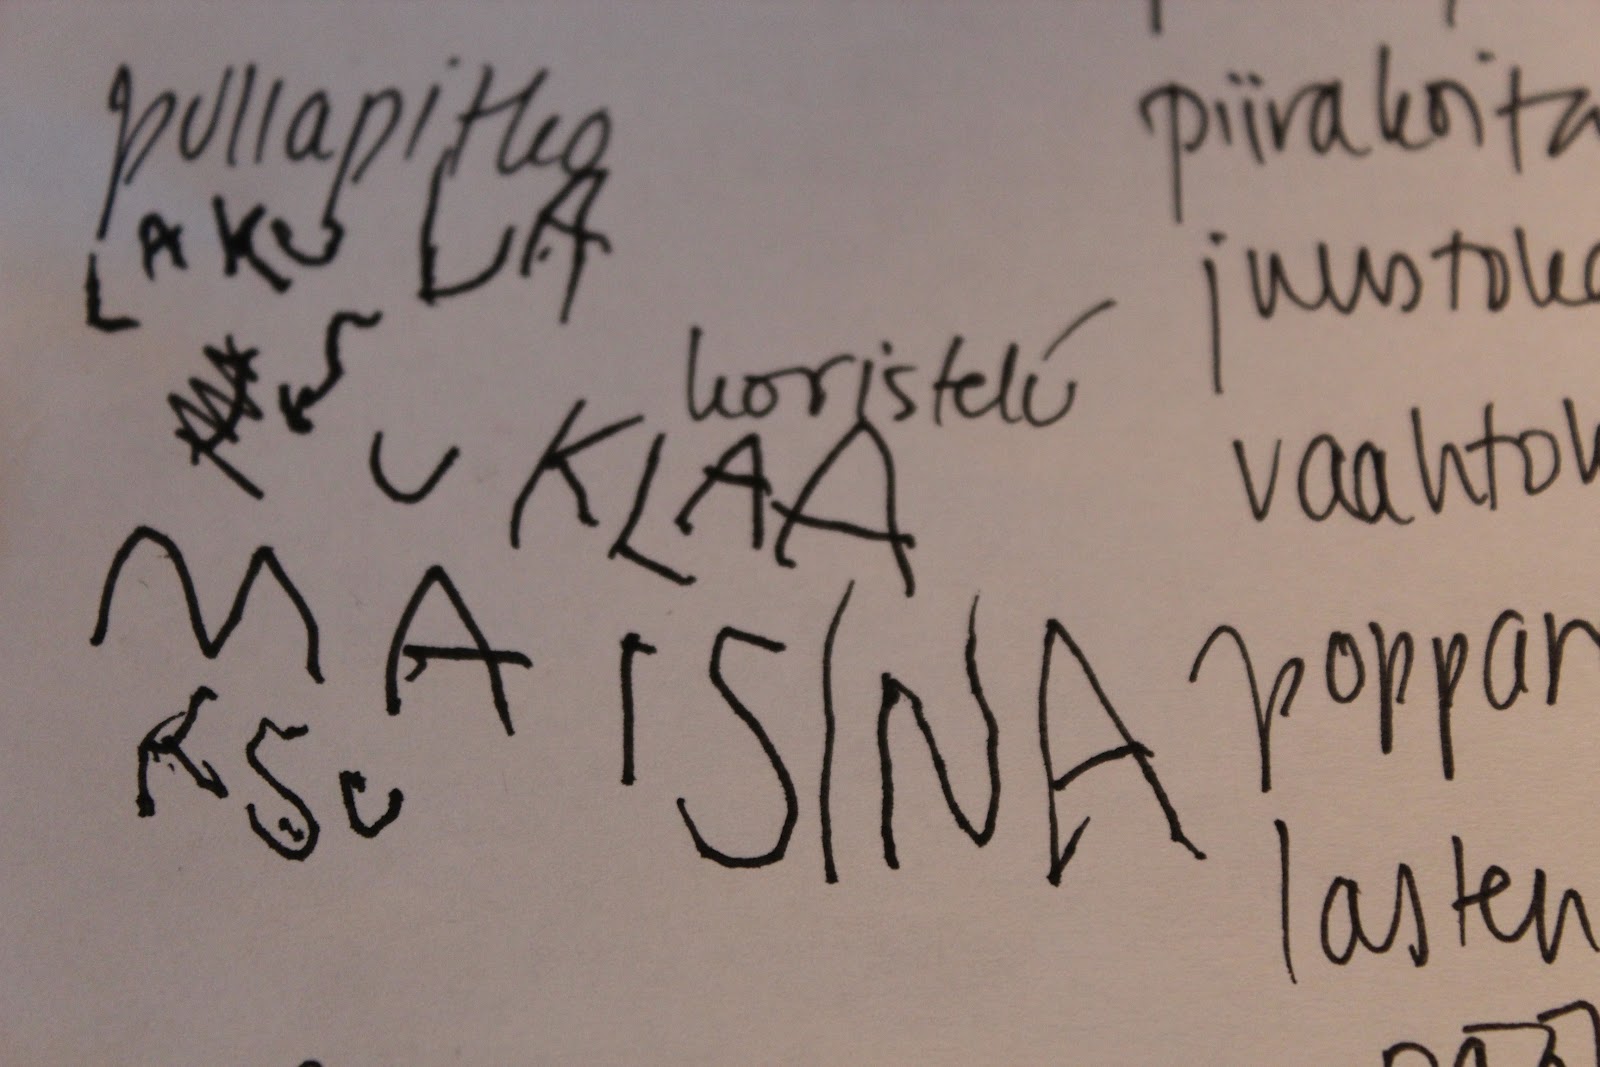 pullapitko
LAKU LA
SUKLAA
koristelu
MA ISINA
KSU
piirakoita
juustoke
vaahtok
poppar
lasten